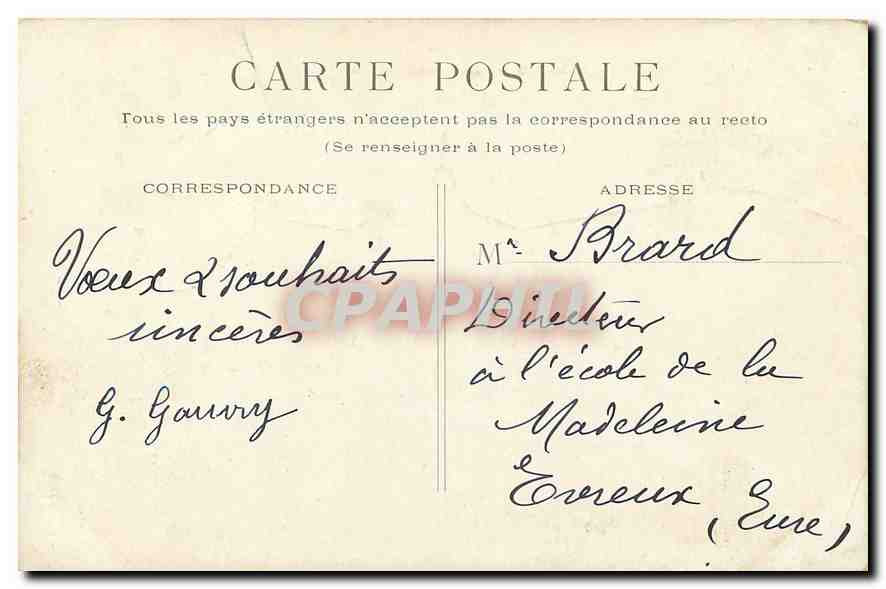 CARTE POSTALE
Tous les pays étrangers n'acceptent pas la correspondance au recto
(Se renseigner à la poste)
CORRESPONDANCE
Vœux & souhaits
sincères
G. Gouvry
ADRESSE
Mr. Brard
Directeur
à l'école de la
Madeleine
Evreux
(Eure)
CPAPHIL